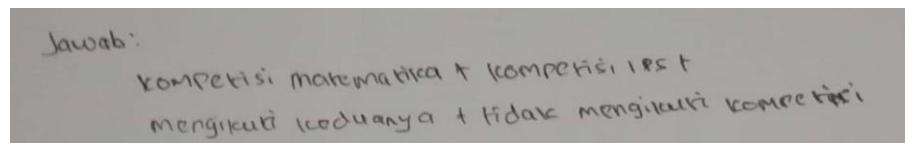 Jawab:
kompetisi matematika + kompetisi IPS +
mengikuti keduanya + tidak mengikuti kompetisi